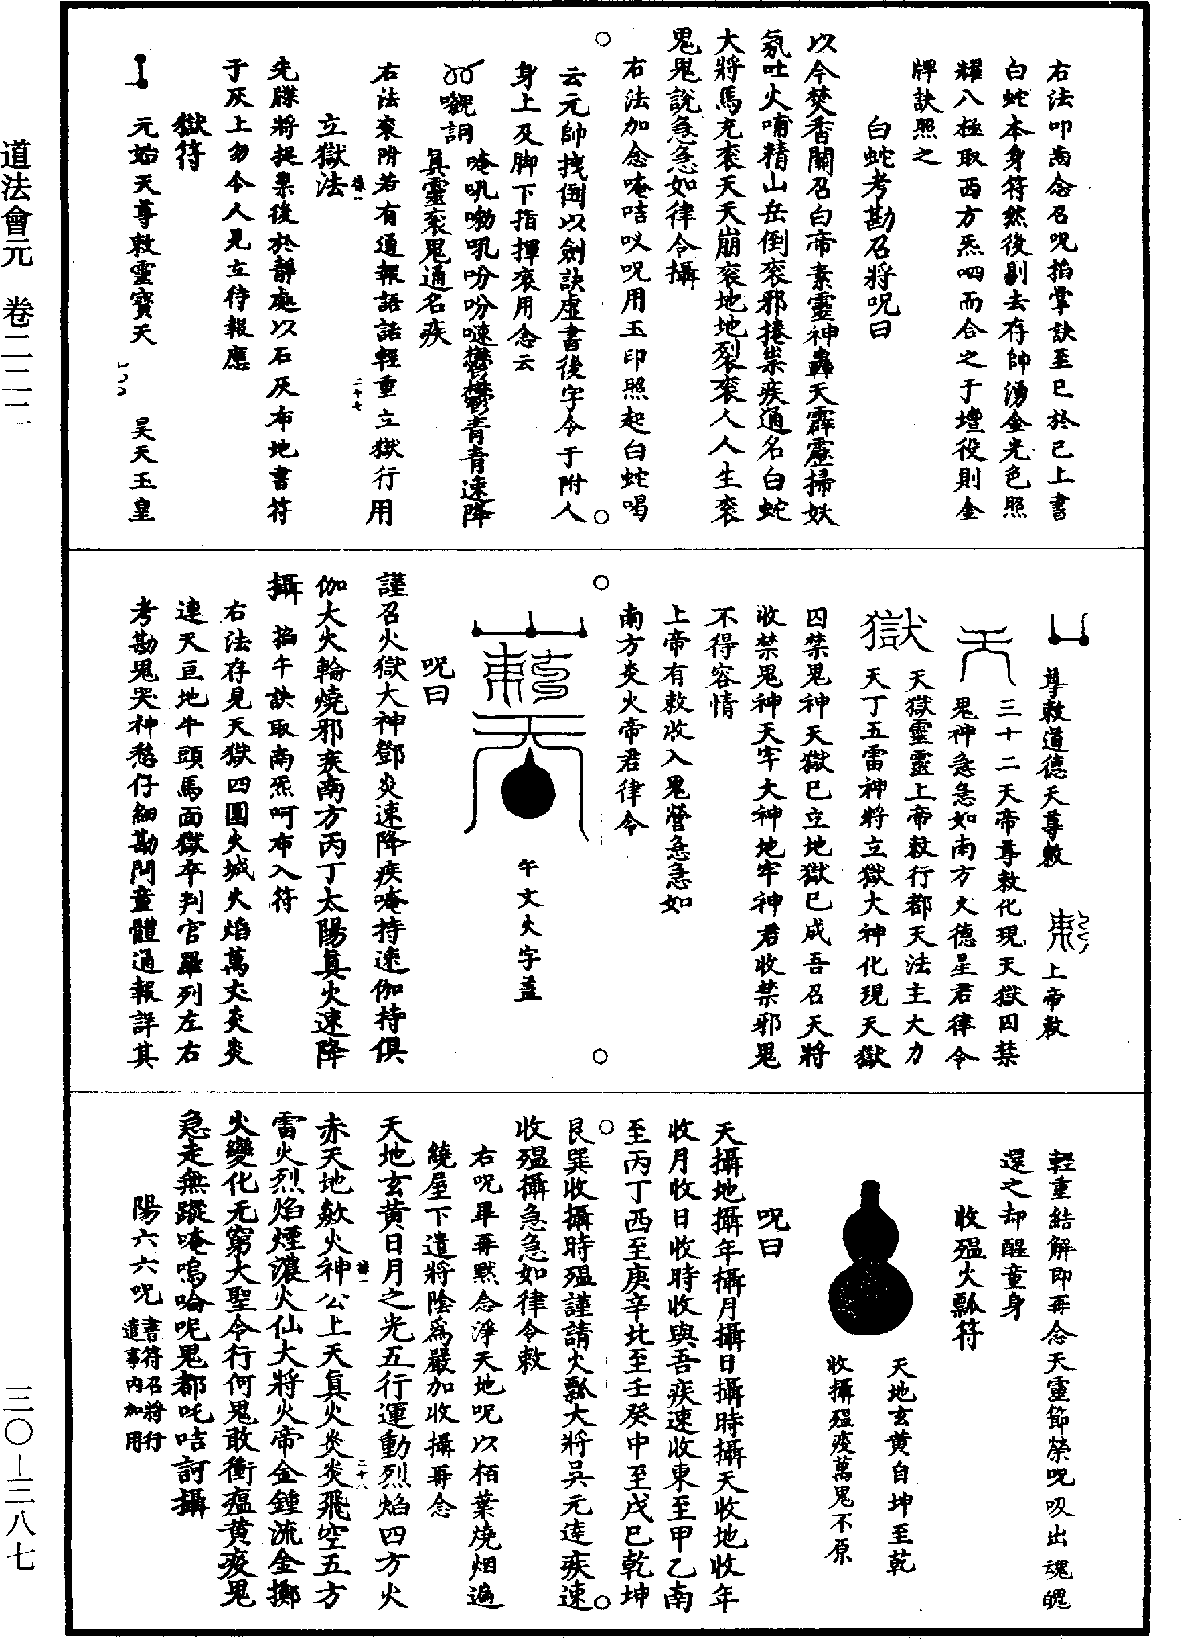 道法會元　卷二二二
三〇—三八七
右法叩齒念召呪掐掌訣至巳於己上書
白蛇本身符然後剔去存帥湧金光色照
耀八極取西方炁呬而合之于壇役則金
牌訣照之
白蛇考勘召將呪曰
以今焚香關召白帝素靈神轟天霹靂掃妖
氛吐火哺精山岳倒衮邪捲祟疾通名白蛇
大將馬充衮天天崩衮地地裂衮人人生衮
鬼鬼說急急如律令攝
右法加念唵咭㕥呪用玉印照起白蛇喝
云元帥拽倒以劍訣虛書後字令于附人
身上及脚下指揮衮用念云
唵吼㘄吼吩吩㗖欝欝青青速降
真靈衮鬼通名疾
右法衮附若有通報語話輕重立獄行用
立獄法
先牒將捉祟後於靜處以石灰布地書符
于灰上勿令人見立待報應
獄符
元始天尊敕靈寶天　昊天玉皇
尊敕道德天尊敕　上帝敕
三十二天帝尊敕化現天獄囚禁
鬼神急急如南方火德星君律令
天獄靈靈上帝敕行都天法主大力
獄　天丁五雷神將立獄大神化現天獄
囚禁鬼神天獄已立地獄已成吾召天將
收禁鬼神天牢大神地牢神君收禁邪鬼
不得容情
上帝有敕收入鬼營急急如
南方炎火帝君律令
午文火字蓋
呪曰
謹召火獄大神鄧炎速降疾唵持速伽持俱
伽大火輪燒邪疾南方丙丁太陽真火速降
攝　掐午訣取南炁呵布入符
右法存見天獄四圍火城火焰萬丈炎炎
連天亘地牛頭馬面獄卒判官羅列左右
考勘鬼哭神愁仔細勘問童體通報詳其
輕重結解即再念天靈節榮呪吸出魂魄
還之却醒童身
收瘟火瓢符
天地玄黄自坤至乾
收攝瘟疫萬鬼不原
呪曰
天攝地攝年攝月攝日攝時攝天收地收年
收月收日收時收與吾疾速收東至甲乙南
至丙丁西至庚辛北至壬癸中至戊己乾坤
艮巽收攝時瘟謹請火瓢大將吳元逵疾速
收瘟攝急急如律令敕
右呪畢再默念淨天地呪以栢葉燒烟遍
繞屋下遣將陰爲嚴加收攝再念
天地玄黄日月之光五行運動烈焰四方火
赤天地歘火神公上天真火炎炎飛空五方
雷火烈焰煙濃火仙大將火帝金鍾流金擲
火變化无窮大聖令行何鬼敢衝瘟黄疫鬼
急走無蹤唵嗚唥呢鬼都吒咭訶攝
陽六六呪　書符召將行
遣事內加用